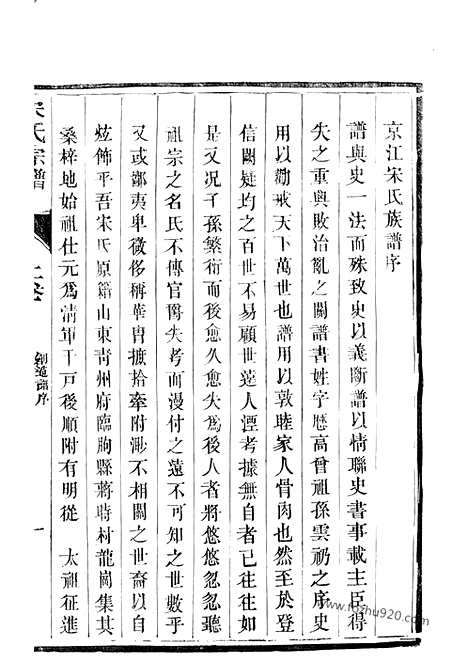 京江宋氏族譜序
譜與史一法而殊致史以義斷譜以情聯史書事載主臣得
失之重與敗治亂之關譜書姓字歷高曾祖孫雲礽之序史
用以勸戒天下萬世也譜用以敦睦家人骨肉也然至於登
信闕疑均之百世不易顧世遠人湮考據無自者已往往如
是又况子孫繁衍而後愈久愈失為後人者將悠悠忽忽聽
祖宗之名氏不傳官閥失考而漫付之遠不可知之世數乎
又或鄙夷卑微侈稱華胄摭拾牽附渺不相關之世裔以自
炫飾乎吾宋氏原籍山東青州府臨朐縣蔣時村龍崗集其
桑梓地始祖仕元為清軍千戶後順附有明從 太祖征進
宋氏宗譜
上
創造譜序
一
www.fozhu920.com